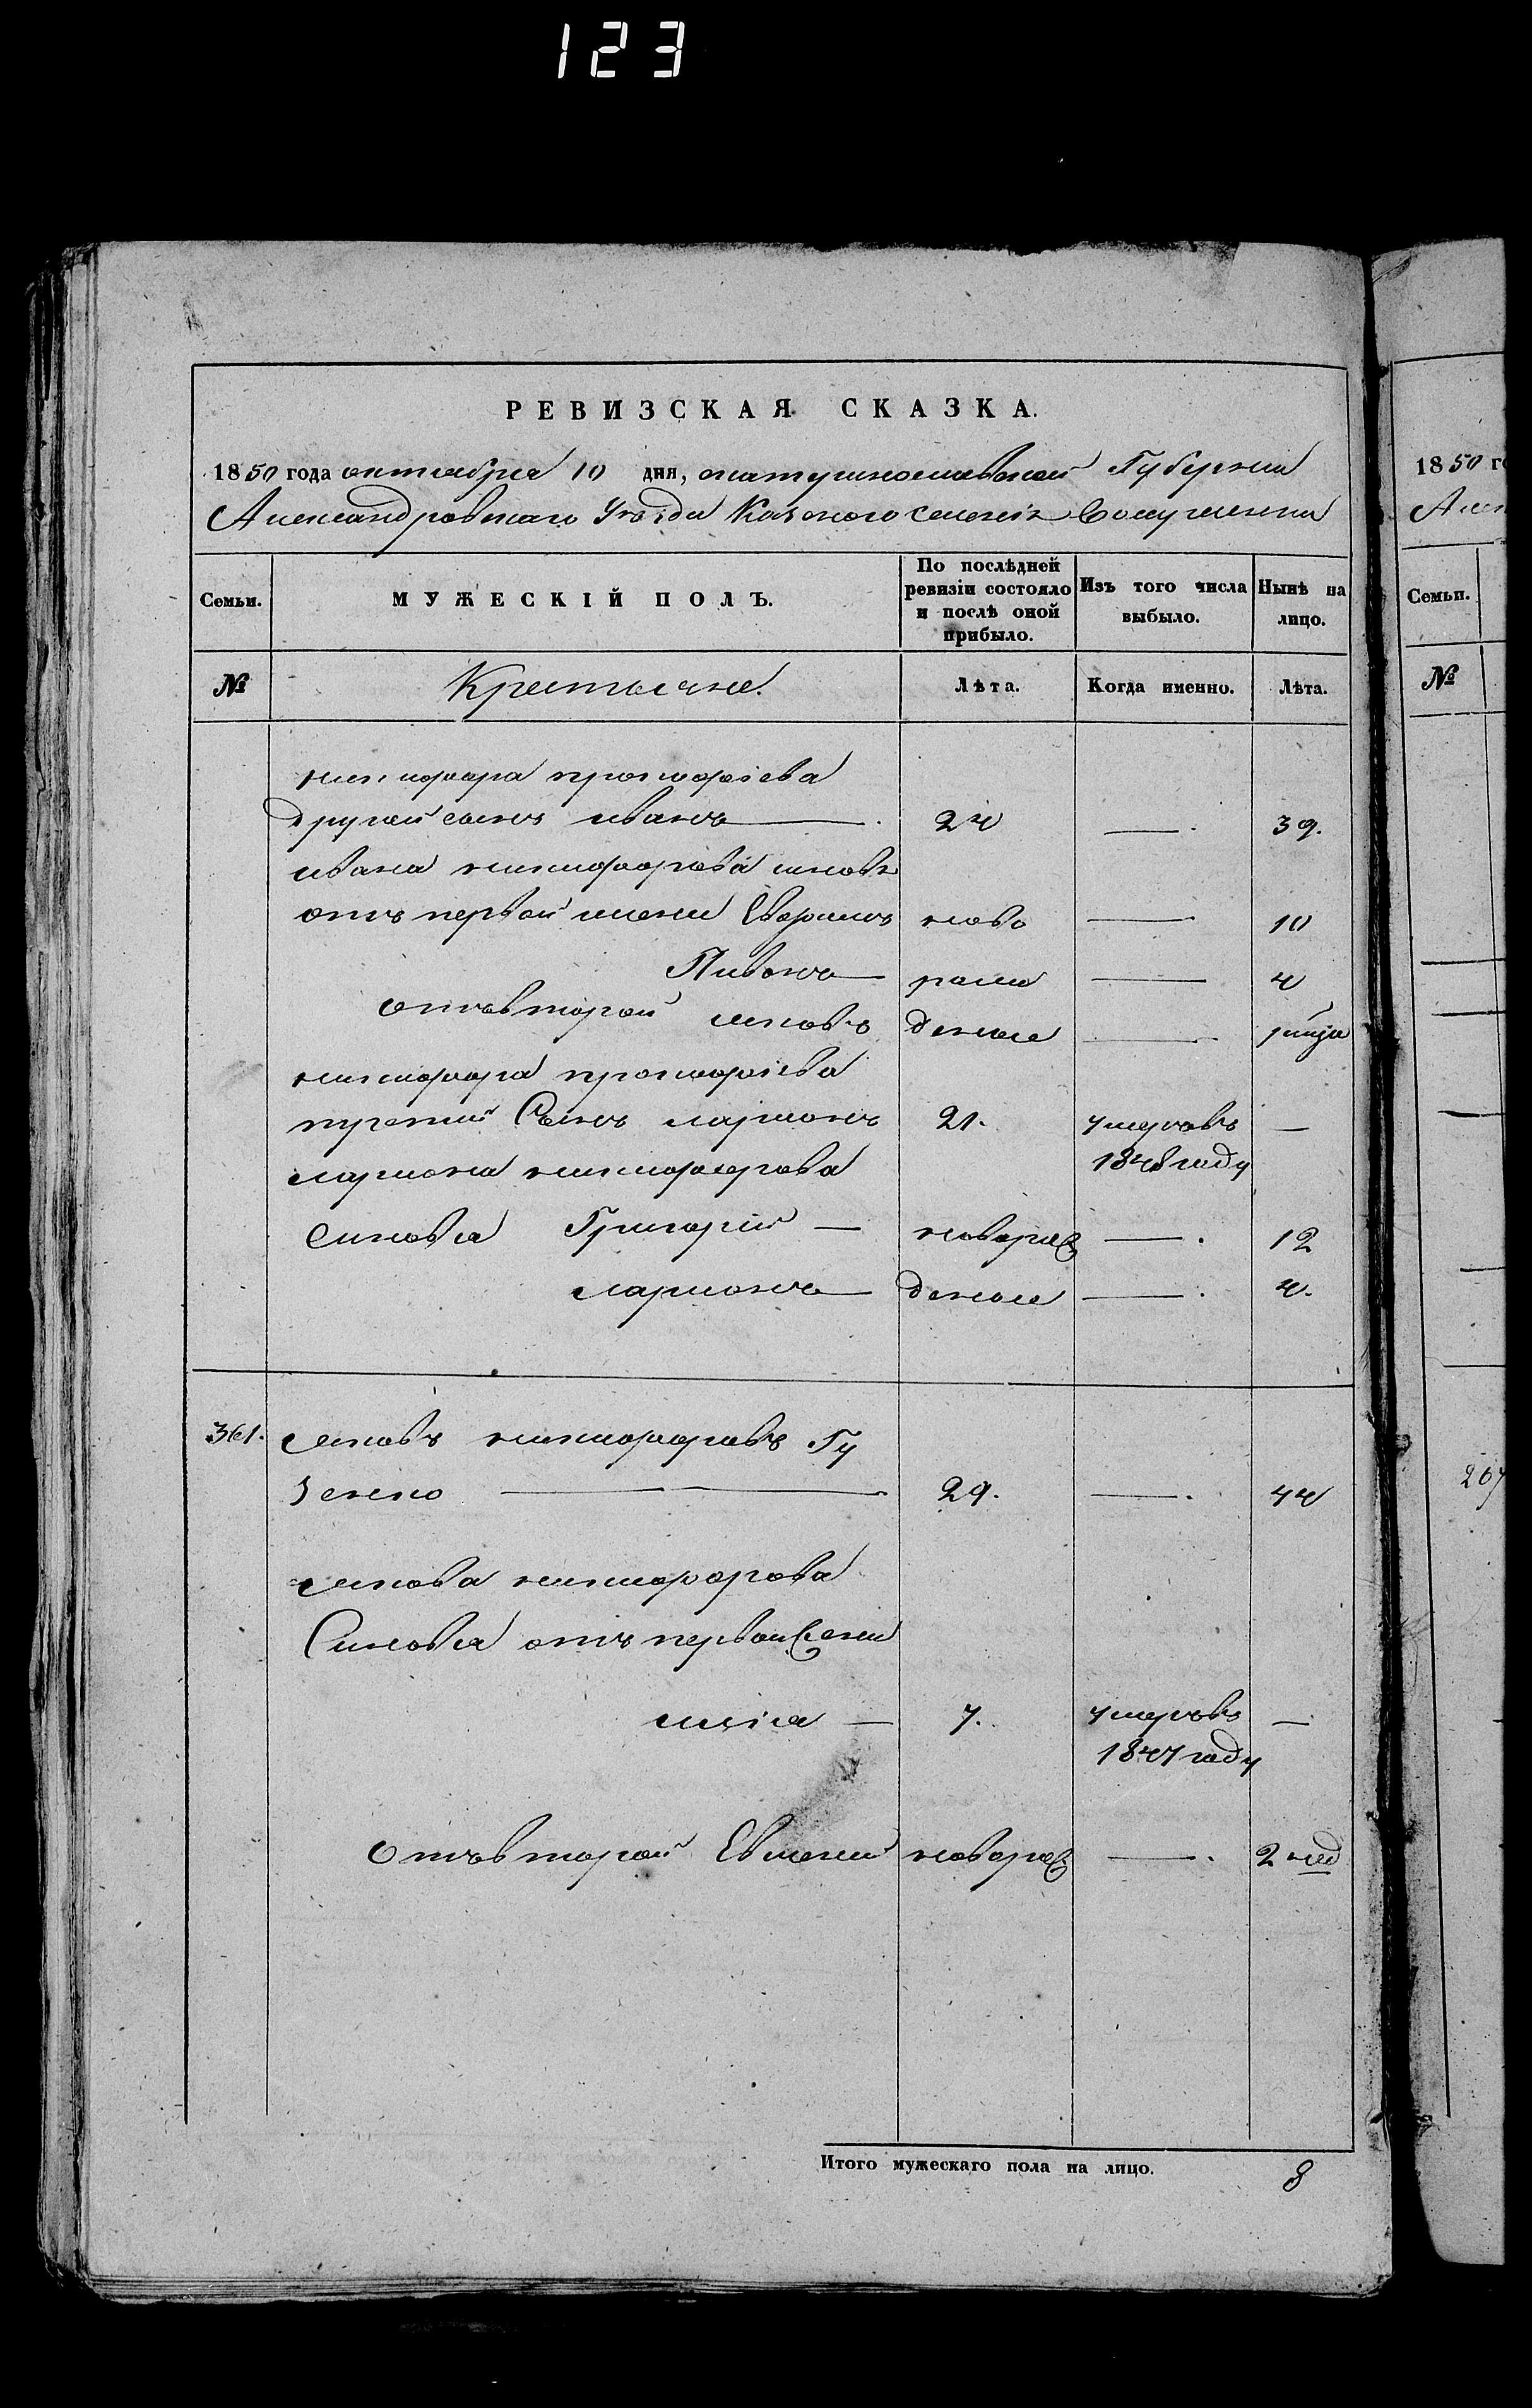 123
РЕВИЗСКАЯ СКАЗКА.
1850 года октября 10 дня, екатеринославской Губернии
Александровскаго Уѣзда Казеного селенія
Семьи. МУЖЕСКІЙ ПОЛЪ. По послѣдней ревизіи состояло и послѣ оной прибыло. Изъ того числа выбыло. Нынѣ на лицо.
№ Крестьяне. Лѣта. Когда именно. Лѣта.
никифора прокофіева
другой сынъ иванъ 24 — 39.
ивана никифорова сыновья
отъ первой жены Евфимъ ново — 10
Пивонъ рож — 4
отъ второй яковъ деные —
никифора прокофіева
третий Сынъ ларионъ 21. умеръ въ —
лариона никифорова 1848 году
Синовья Григорій — новорож — 12
ларионъ — деные — 4.
361. яковъ никифоровъ Гу
зенко — 29. — 44
якова никифорова
Синовья отъ первой жены
илія — 7. умеръ въ —
1847 году
отъ второй Евмений новорож — 2 нед
Итого мужескаго пола на лицо. 8
1850 г
Семьи.
№